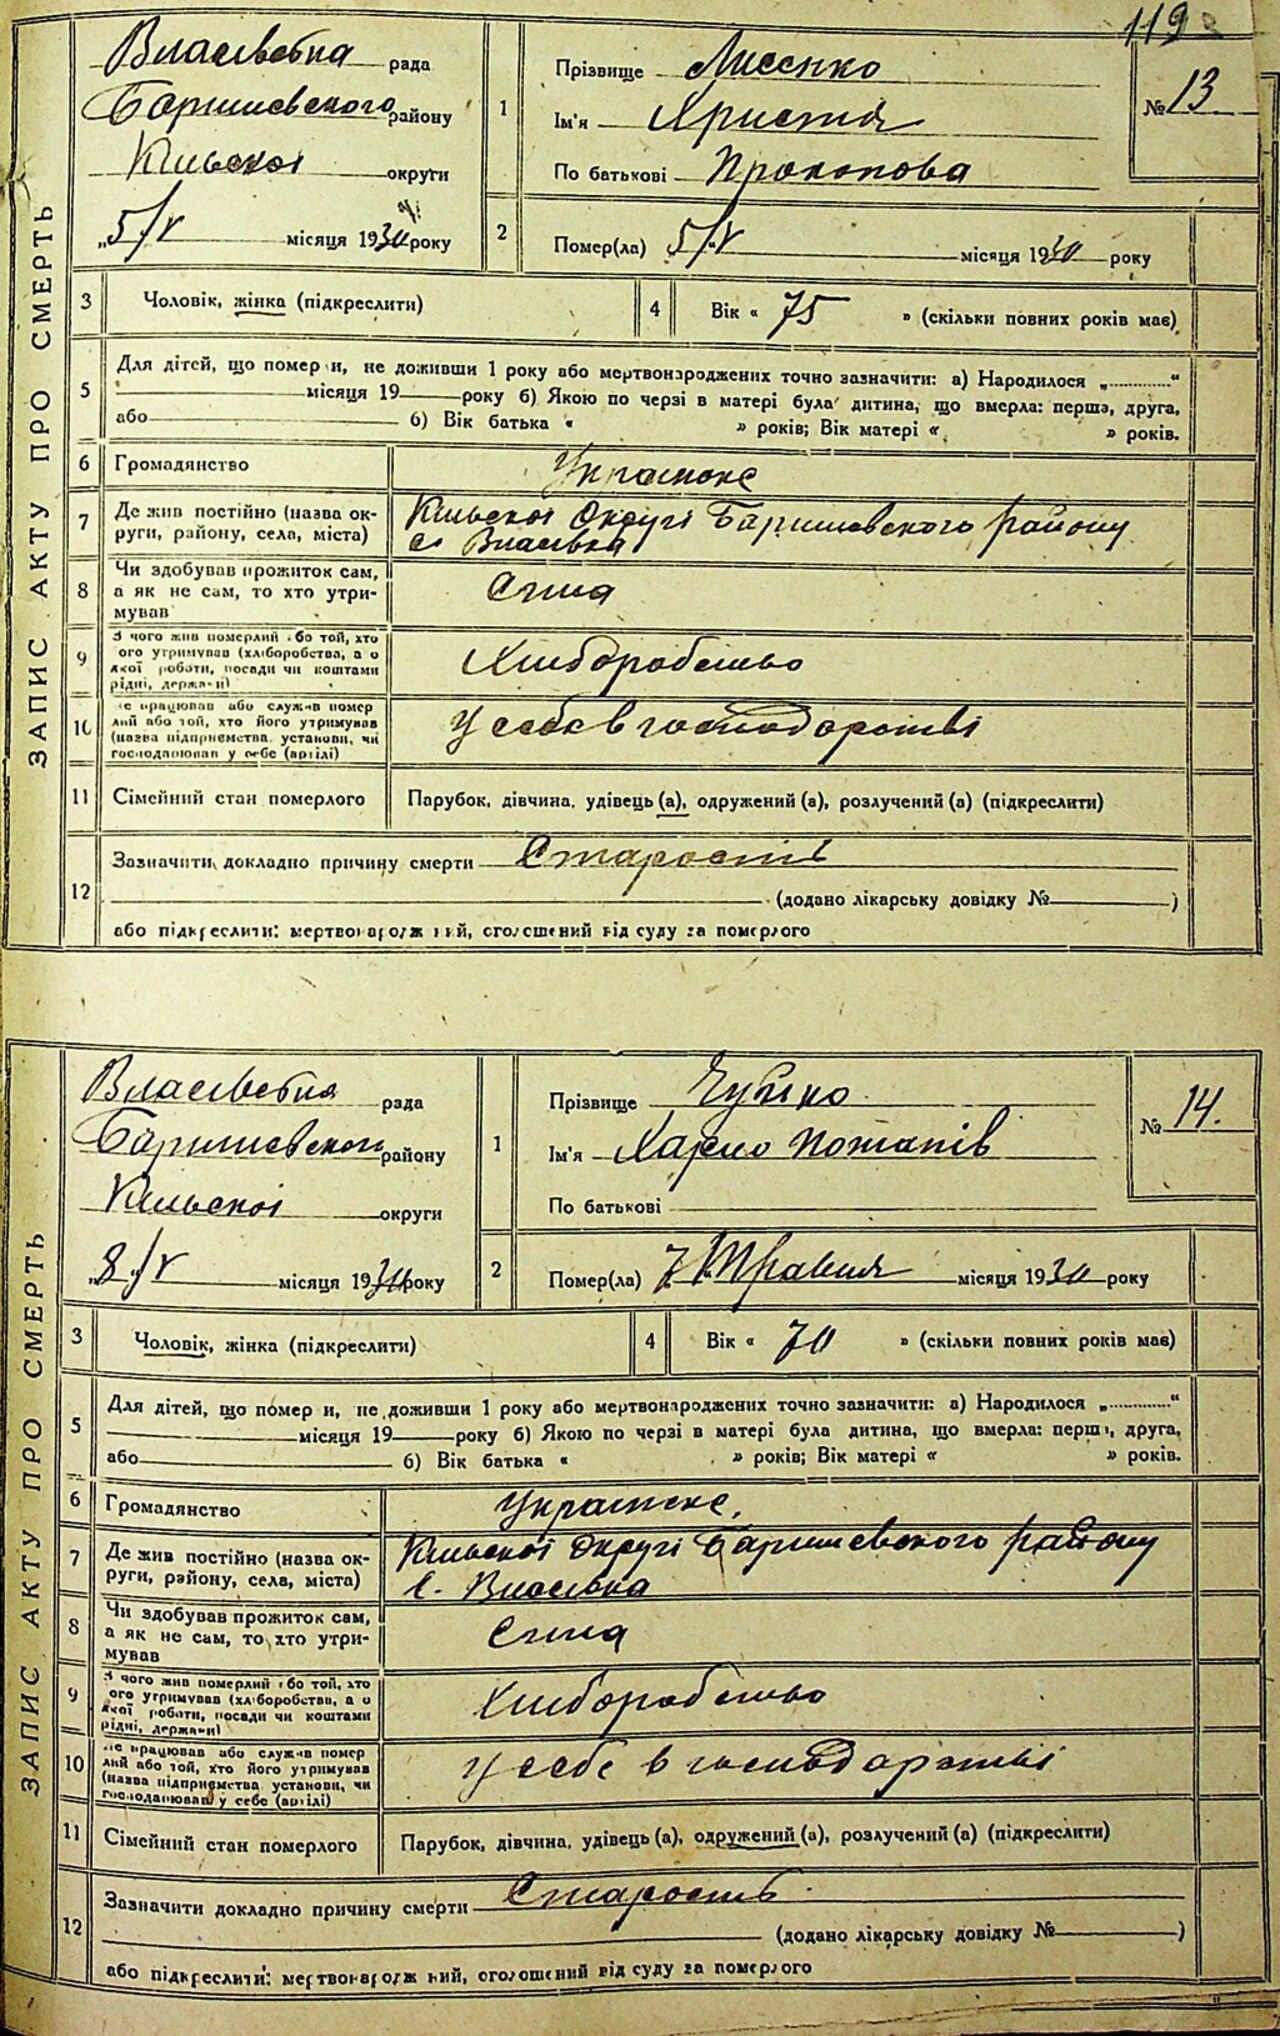 119
ЗАПИС АКТУ ПРО СМЕРТЬ
Власівська рада
Баришевского району
Київскої округи
„5/V місяця 1930 року
1
Прізвище Лисенко
Ім'я Христя
По батькові Прокопова
№ 13
2
Помер(ла) 5/V місяця 1930 року
3 Чоловік, жінка (підкреслити)
4 Вік « 75 » (скільки повних років має)
5
Для дітей, що помер и, не доживши 1 року або мертвонароджених точно зазначити: а) Народилося „............“
місяця 19 року б) Якою по черзі в матері була дитина, що вмерла: перша, друга,
або 6) Вік батька « » років; Вік матері « » років.
6 Громадянство Украінске
7
Де жив постійно (назва ок-
руги, району, села, міста)
Київскої Округі Баришевского району
с. Власівка
8
Чи здобував прожиток сам,
а як не сам, то хто утри-
мував
9
З чого жив померлий або той, хто
ого утримував (хліборобства, а о
якої роботи, посади чи коштами
рідні, держави)
Хліборобство
10
е працював або служив помер
лий або той, хто його утримував
(назва підприємства, установи, чи
господарював у себе (артілі)
У себе в господарстві
11 Сімейний стан померлого Парубок, дівчина, удівець (а), одружений (а), розлучений (а) (підкреслити)
12
Зазначити докладно причину смерти Старость
(додано лікарську довідку № )
або підкреслити: мертвонародж ний, оголошений від суду за померлого
ЗАПИС АКТУ ПРО СМЕРТЬ
Власівська рада
Баришевского району
Київскої округи
„8/V місяця 1930 року
1
Прізвище Чуйко
Ім'я Харко Потапів
По батькові
№ 14.
2
Помер(ла) 7 Травня місяця 1930 року
3 Чоловік, жінка (підкреслити)
4 Вік « 70 » (скільки повних років має)
5
Для дітей, що помер и, не доживши 1 року або мертвонароджених точно зазначити: а) Народилося „............“
місяця 19 року б) Якою по черзі в матері була дитина, що вмерла: перша, друга,
або 6) Вік батька « » років; Вік матері « » років.
6 Громадянство Украінске.
7
Де жив постійно (назва ок-
руги, району, села, міста)
Київскої Округі Баришевского району
с. Власівка
8
Чи здобував прожиток сам,
а як не сам, то хто утри-
мував
9
З чого жив померлий або той, хто
ого утримував (хліборобства, а о
якої роботи, посади чи коштами
рідні, держави)
Хліборобство
10
е працював або служив помер
лий або той, хто його утримував
(назва підприємства, установи, чи
господарював у себе (артілі)
У себе в господарстві
11 Сімейний стан померлого Парубок, дівчина, удівець (а), одружений (а), розлучений (а) (підкреслити)
12
Зазначити докладно причину смерти Старость
(додано лікарську довідку № )
або підкреслити: мертвонародж ний, оголошений від суду за померлого